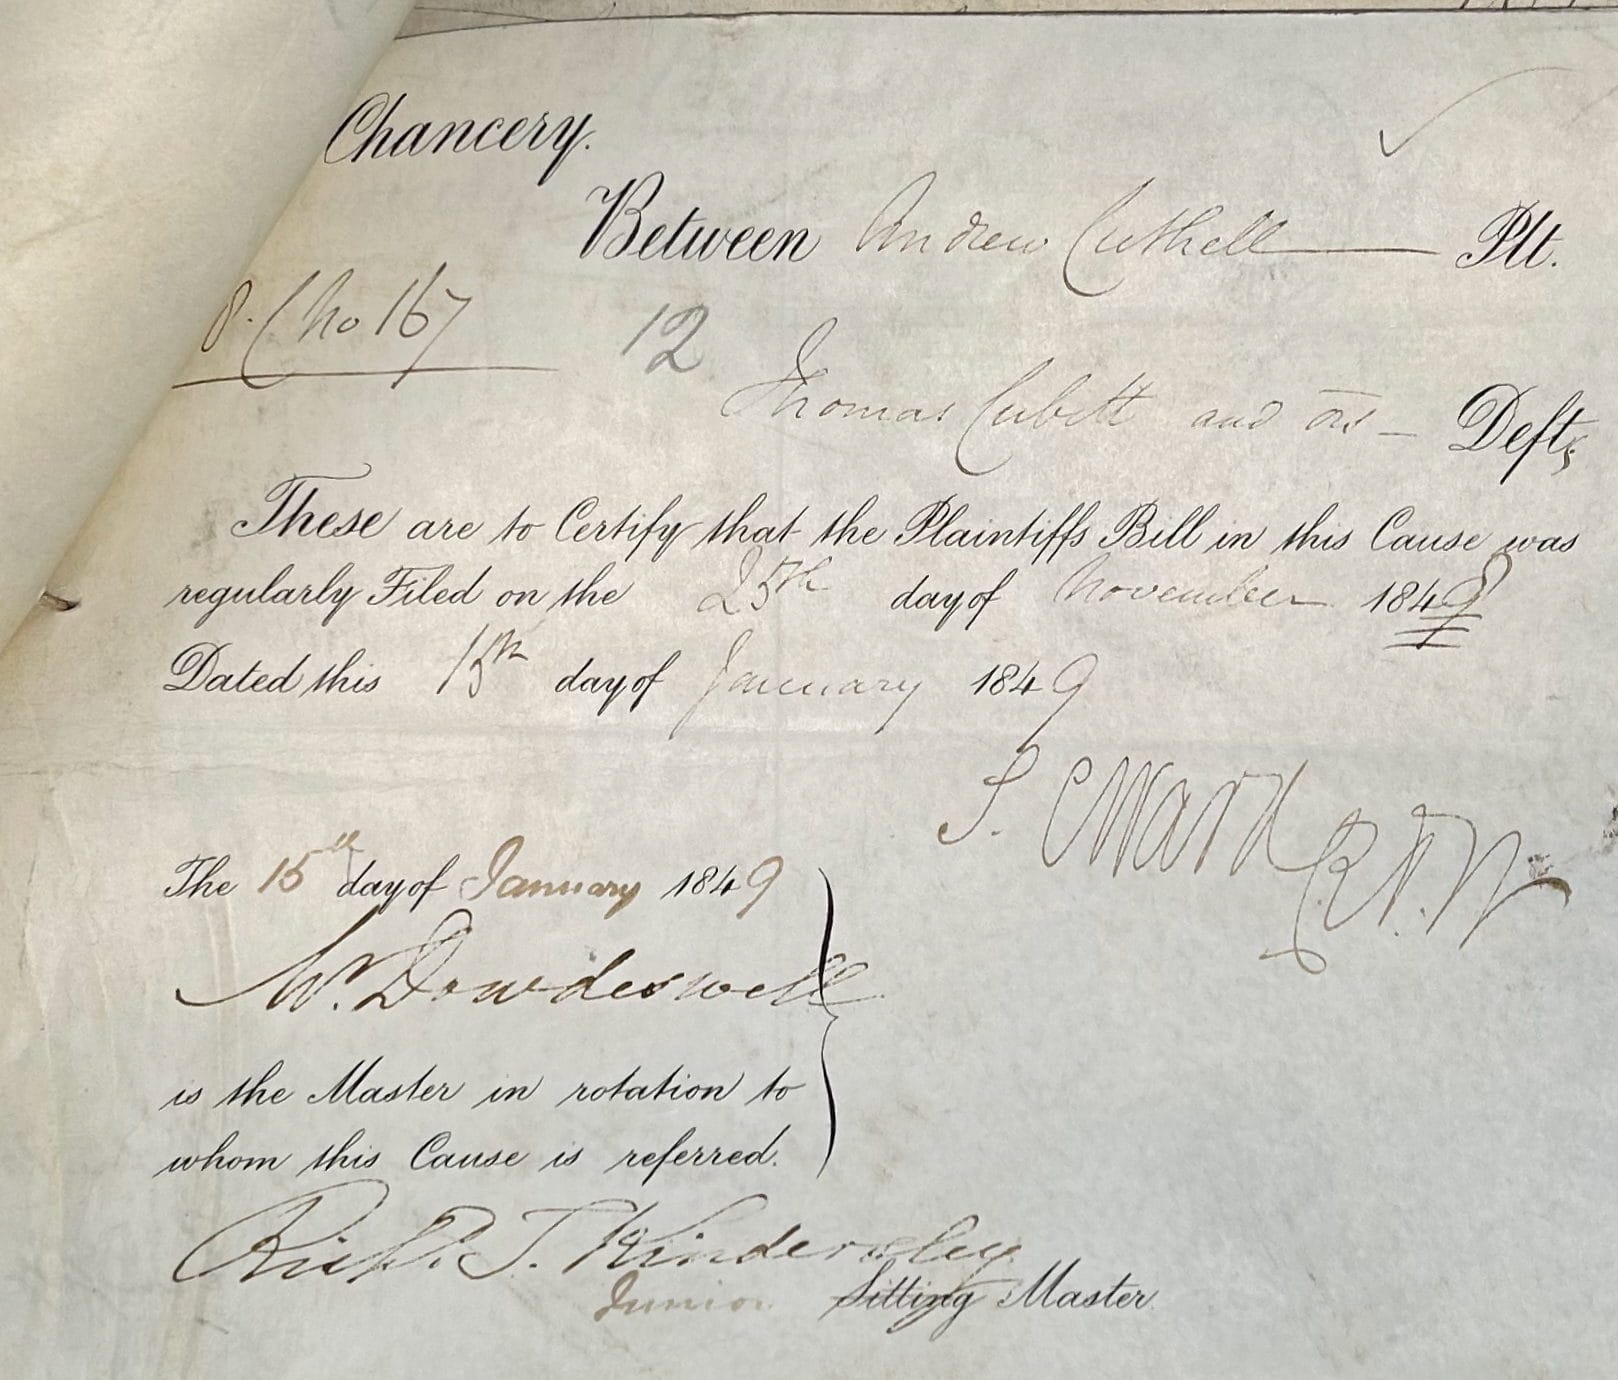 Chancery.
Between Andrew Cuthell Plt.
8. C no 167
12
Thomas Cubitt and ors Defts
These are to Certify that the Plaintiffs Bill in this Cause was
regularly Filed on the 25th day of November 1848
Dated this 15th day of January 1849
S. Ward
The 15th day of January 1849
Mr. Dowdeswell
is the Master in rotation to
whom this Cause is referred.
Richd. T. Kindersley
Junior Sitting Master